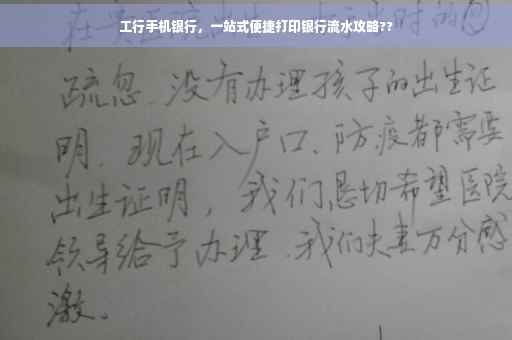 工行手机银行，一站式便捷打印银行流水攻略??
疏忽、没有办理孩子的出生证
明、现在入户口、防疫都需要
出生证明，我们恳切希望医院
领导给予办理、我们夫妻万分感
激。